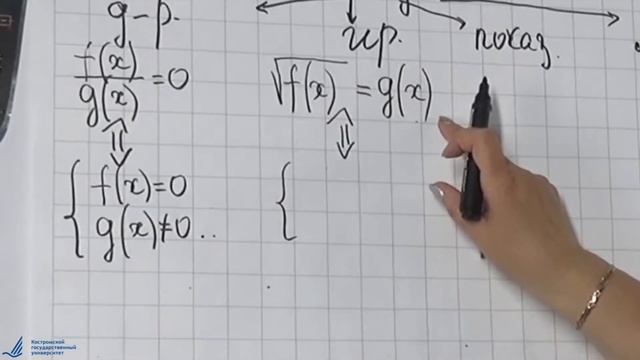 g-р.
f(x)/g(x) = 0
⇕
{ f(x)=0
g(x)≠0 ..
ир.
√f(x) = g(x)
⇕
{
показ.
Костромской
государственный
университет